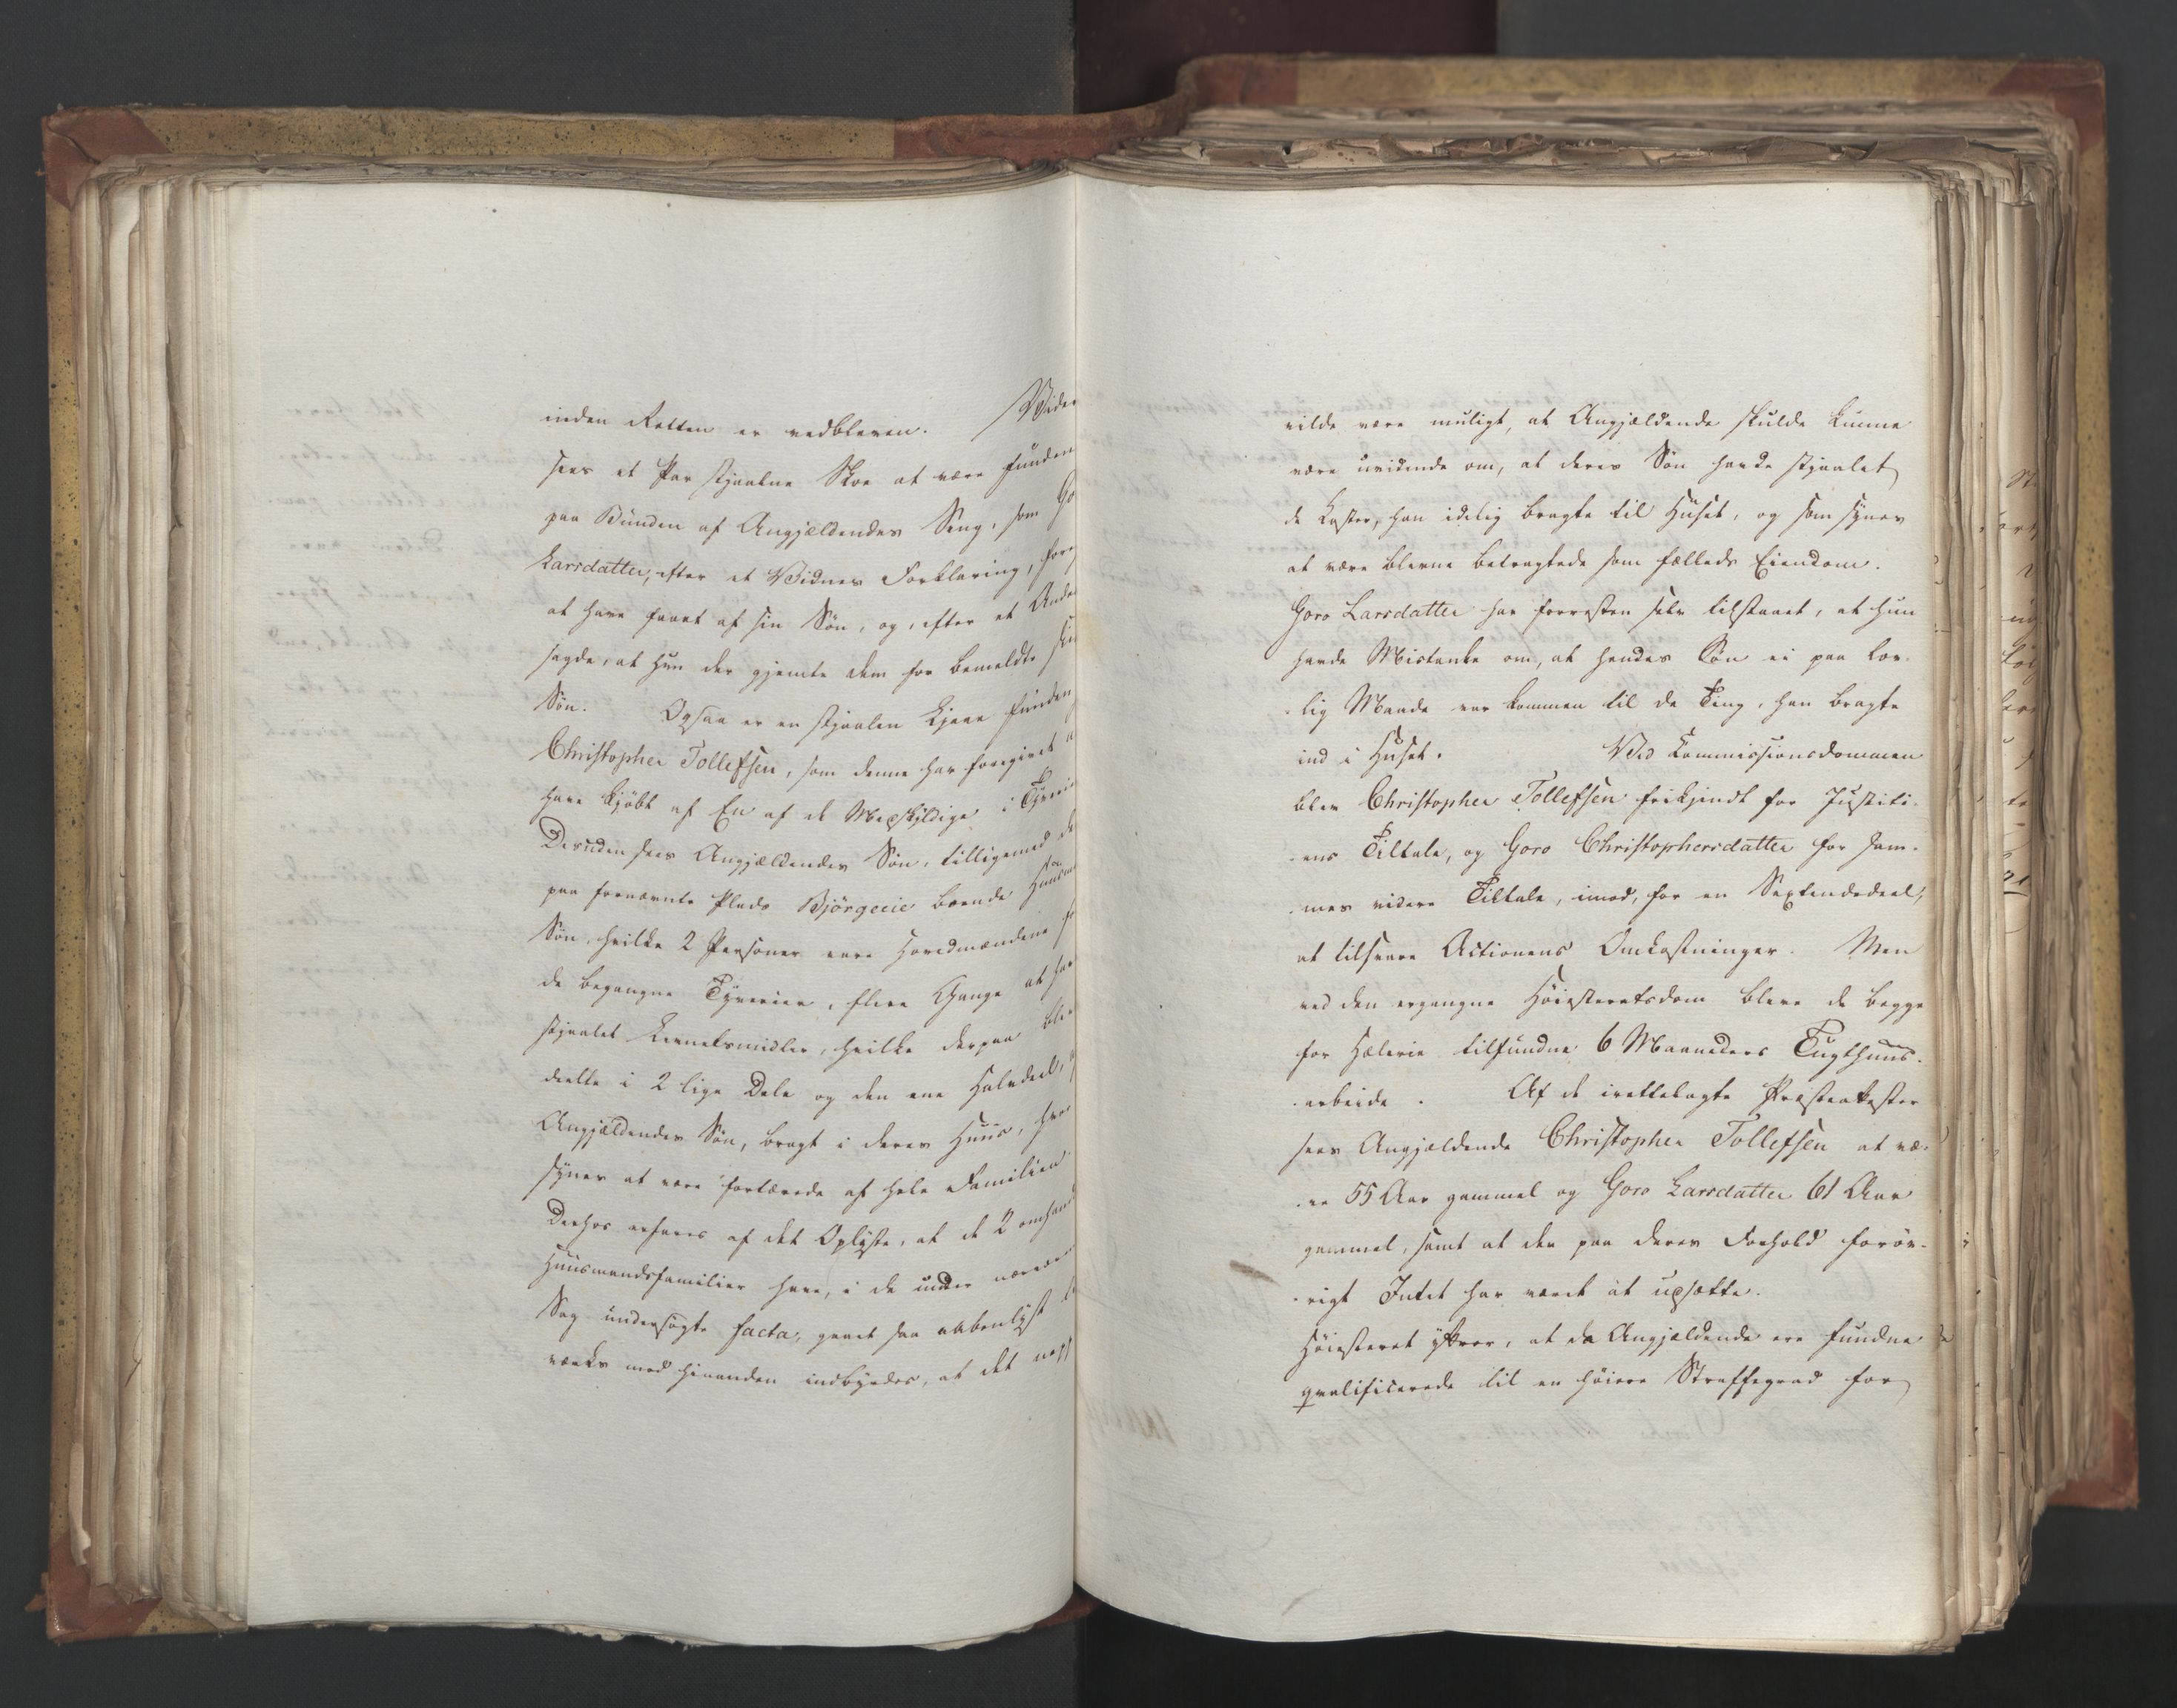 inden Retten er vedbleven. Vider
sees et Par stjaalne Skoe at være funden
paa Bunden af Angjældendes Seng, som Go
Larsdatter, efter et Vidnes Forklaring, fore
at have faaet af sin Søn, og, efter et Ande
sagde, at hun der gjemte dem for bemeldte sin
Søn. Ogsaa er en stjaalen funden
Christopher Tollefsen, som denne har foregivet a
have kjöbt af En af de Medskyldige i Tyveri
Desuden sees Angjældendes Søn, tilligemed de
paa fornævnte Plads Björgeeie boende Huusma
Søn, hvilke 2 Personer vare Hovedmændene fo
de begangne Tyverier, flere Gange at hav
stjaalet Levnetsmidler, hvilke derpaa blev
deelte i 2 lige Dele og den ene Halvdeel, a
Angjældendes Søn, bragt i deres Huus, hvor
synes at være fortærede af hele Familien
Derhos erfares af det Oplyste, at de 2 omhand
Huusmandsfamilier have, i de under nærvær
Sag undersøgte facta, gaaet saa aabenlyst
værks med hinanden indbyrdes, at det nepp
vilde være muligt, at Angjældende skulde kunne
være uvidende om, at deres Søn havde stjaalet
de Koster, han idelig bragte til Huset, og som synes
at være blevne betragtede som fælleds Eiendom.
Goro Larsdatter har forresten selv tilstaaet, at hun
havde Mistanke om, at hendes Søn ei paa lov-
-lig Maade var kommen til de Ting, han bragte
ind i Huset. Ved Commissionsdommen
blev Christopher Tollefsen frikjendt for Justiti-
-ens Tiltale, og Goro Christophersdatter for sam-
-mes videre Tiltale, imod, for en Sextendedeel,
at tilsvare Actionens Omkostninger. Men
ved den ergangne Höiesteretsdom bleve de begge
for Hæleri tilfundne 6 Maaneders Tugthuus-
-arbeide. Af de irettelagte Præsteattester
sees Angjældende Christopher Tollefsen at væ-
-re 55 Aar gammel og Goro Larsdatter 61 Aar
gammel, samt at der paa deres Forhold forøv-
-rigt Intet har været at udsætte.
Höiesteret yttrer, at da Angjældende ere fundne
qvalificerede til en höiere Straffegrad for